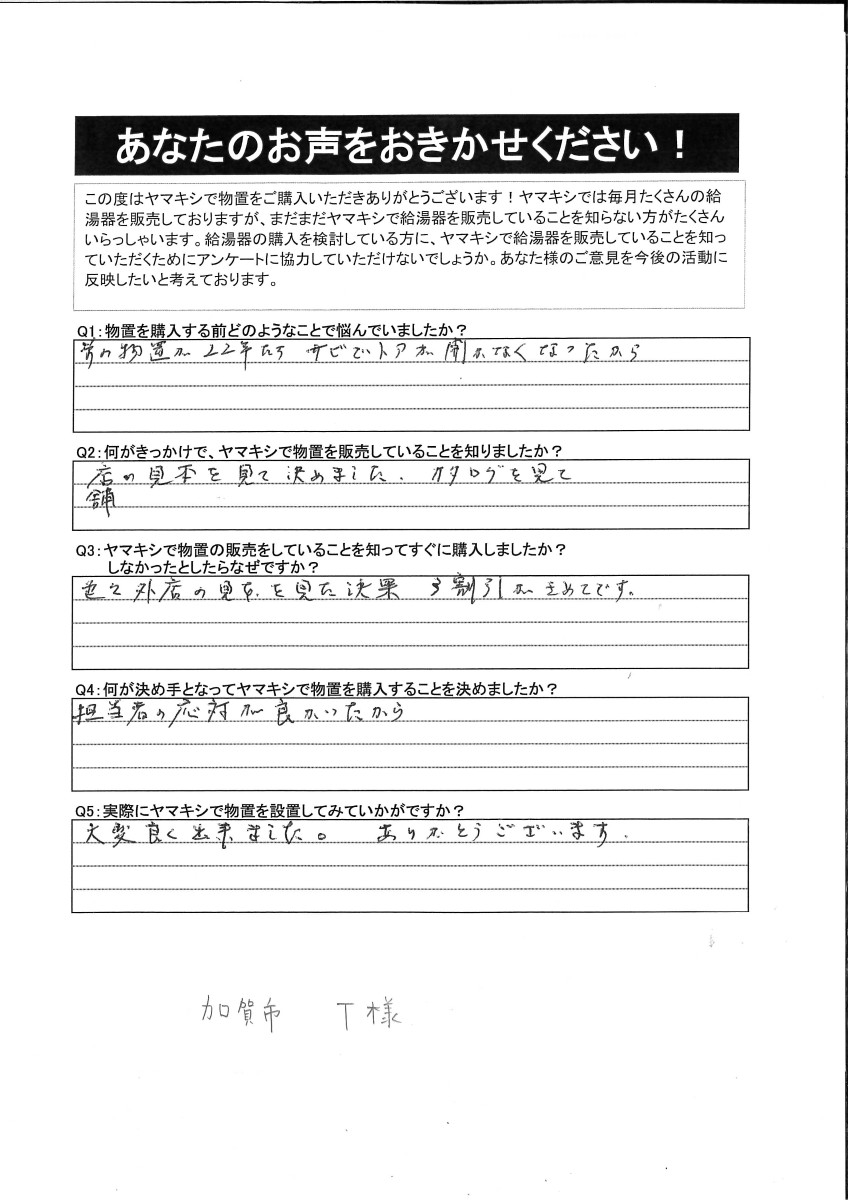 あなたのお声をおきかせください！
この度はヤマキシで物置をご購入いただきありがとうございます！ヤマキシでは毎月たくさんの給
湯器を販売しておりますが、まだまだヤマキシで給湯器を販売していることを知らない方がたくさん
いらっしゃいます。給湯器の購入を検討している方に、ヤマキシで給湯器を販売していることを知っ
ていただくためにアンケートに協力していただけないでしょうか。あなた様のご意見を今後の活動に
反映したいと考えております。
Q1：物置を購入する前どのようなことで悩んでいましたか？
前の物置が22年たち サビでドアが開かなくなったから
Q2：何がきっかけで、ヤマキシで物置を販売していることを知りましたか？
店の見本を見て決めました. カタログを見て
舗
Q3：ヤマキシで物置の販売をしていることを知ってすぐに購入しましたか？
しなかったとしたらなぜですか？
色々外店の見本を見た決果 3割引が きめてです。
Q4：何が決め手となってヤマキシで物置を購入することを決めましたか？
担当者の応対が良かったから
Q5：実際にヤマキシで物置を設置してみていかがですか？
大変良く出来ました。 ありがとうございます.
加賀市 T様